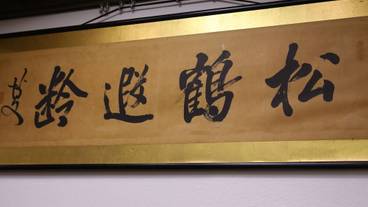 松鶴遐齡